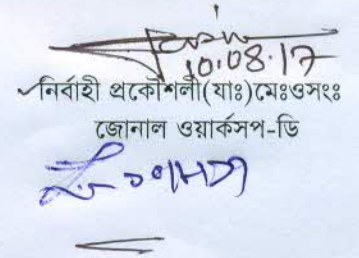 10.08.17
নির্বাহী প্রকৌশলী(যাঃ)মেঃওসংঃ
জোনাল ওয়ার্কসপ-ডি